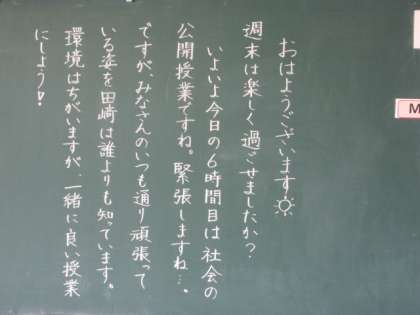 おはようございます☼
週末は楽しく過ごせましたか?
いよいよ今日の6時間目は社会の
公開授業ですね。緊張しますね…。
ですが、みなさんのいつも通り頑張って
いる姿を田崎は誰よりも知っています。
環境はちがいますが、一緒に良い授業
にしよう!
M